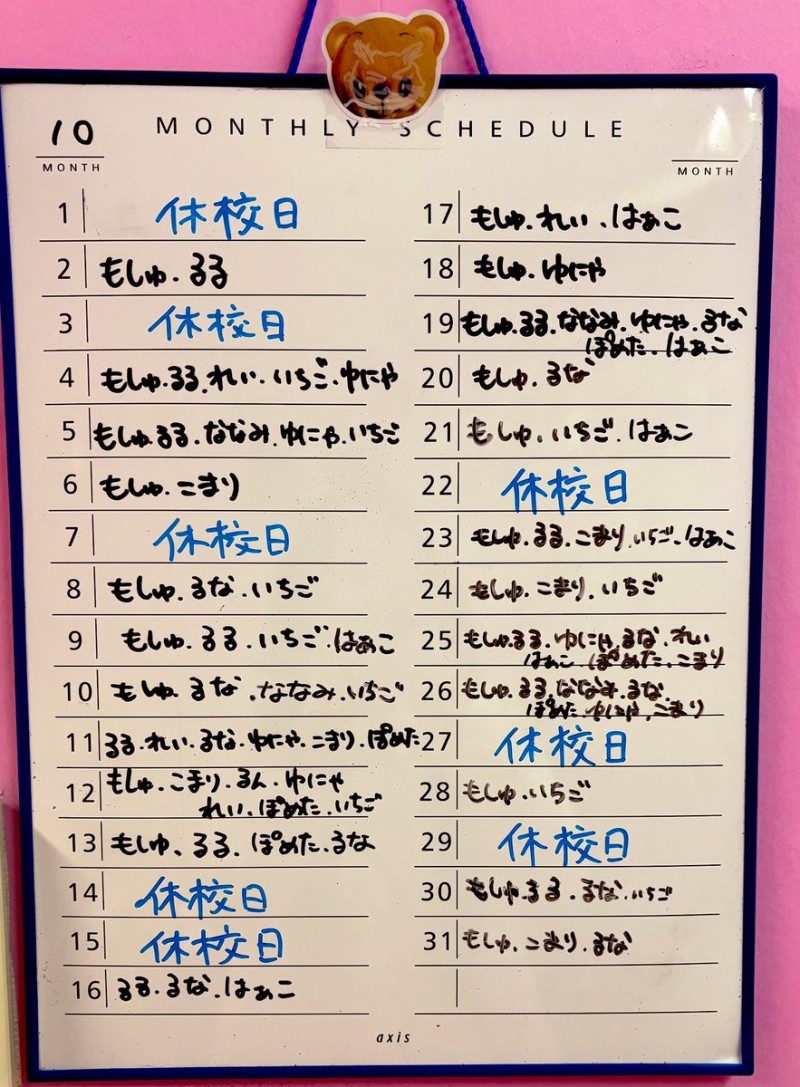 10
MONTH
MONTHLY SCHEDULE
MONTH
1 休校日
2 もしゅ.るる
3 休校日
4 もしゅ.るる.れい.いちご.ゆにゃ
5 もしゅ.るる.ななみ.ゆにゃ.いちご
6 もしゅ.こまり
7 休校日
8 もしゅ.るな.いちご
9 もしゅ.るる.いちご.はぁこ
10 もしゅ.るな.ななみ.いちご
11 るる.れい.るな.ゆにゃ.こまり.ぽめた
12 もしゅ.こまり.るん.ゆにゃ
れい.ぽめた.いちご
13 もしゅ、るる.ぽめた.るな
14 休校日
15 休校日
16 るる.るな.はぁこ
17 もしゅ.れい.はぁこ
18 もしゅ.ゆにゃ
19 もしゅ.るる.ななみ.ゆにゃ.るな
ぽめた.はぁこ
20 もしゅ.るな
21 もしゅ.いちご.はぁこ
22 休校日
23 もしゅ.るる.こまり.いちご.はぁこ
24 もしゅ.こまり.いちご
25 もしゅ.るる.ゆにゃ.るな.れい
はぁこ.ぽめた.こまり
26 もしゅ.るる.ななみ.るな.
ぽめた.ゆにゃ.こまり
27 休校日
28 もしゅ.いちご
29 休校日
30 もしゅ.るる.るな.いちご
31 もしゅ.こまり.るな
axis